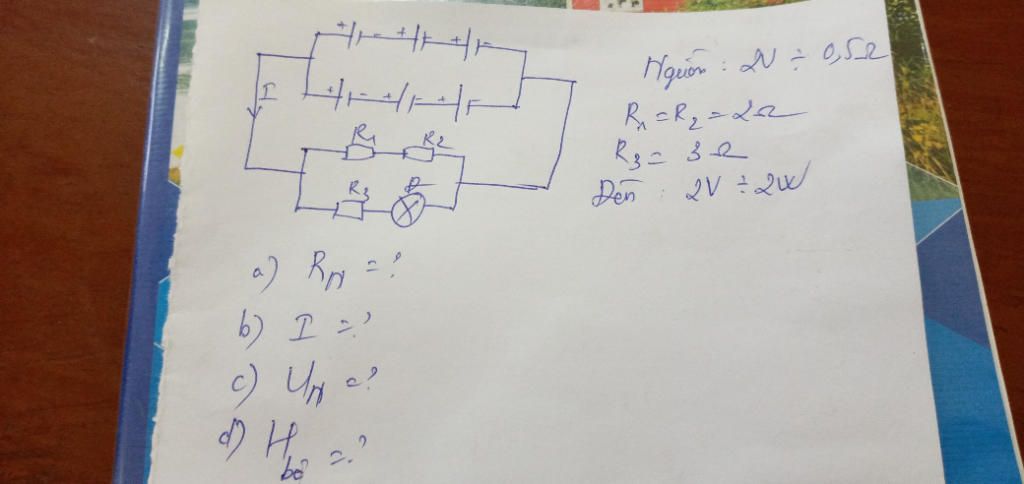 + - + - + -
+ - + - + -
I
R1 R2
R3 Đ
Nguồn : 2V ÷ 0,5Ω
R1 = R2 = 2Ω
R3 = 3Ω
Đèn : 2V ÷ 2W
a) RN = ?
b) I = ?
c) UN = ?
d) Hbộ = ?